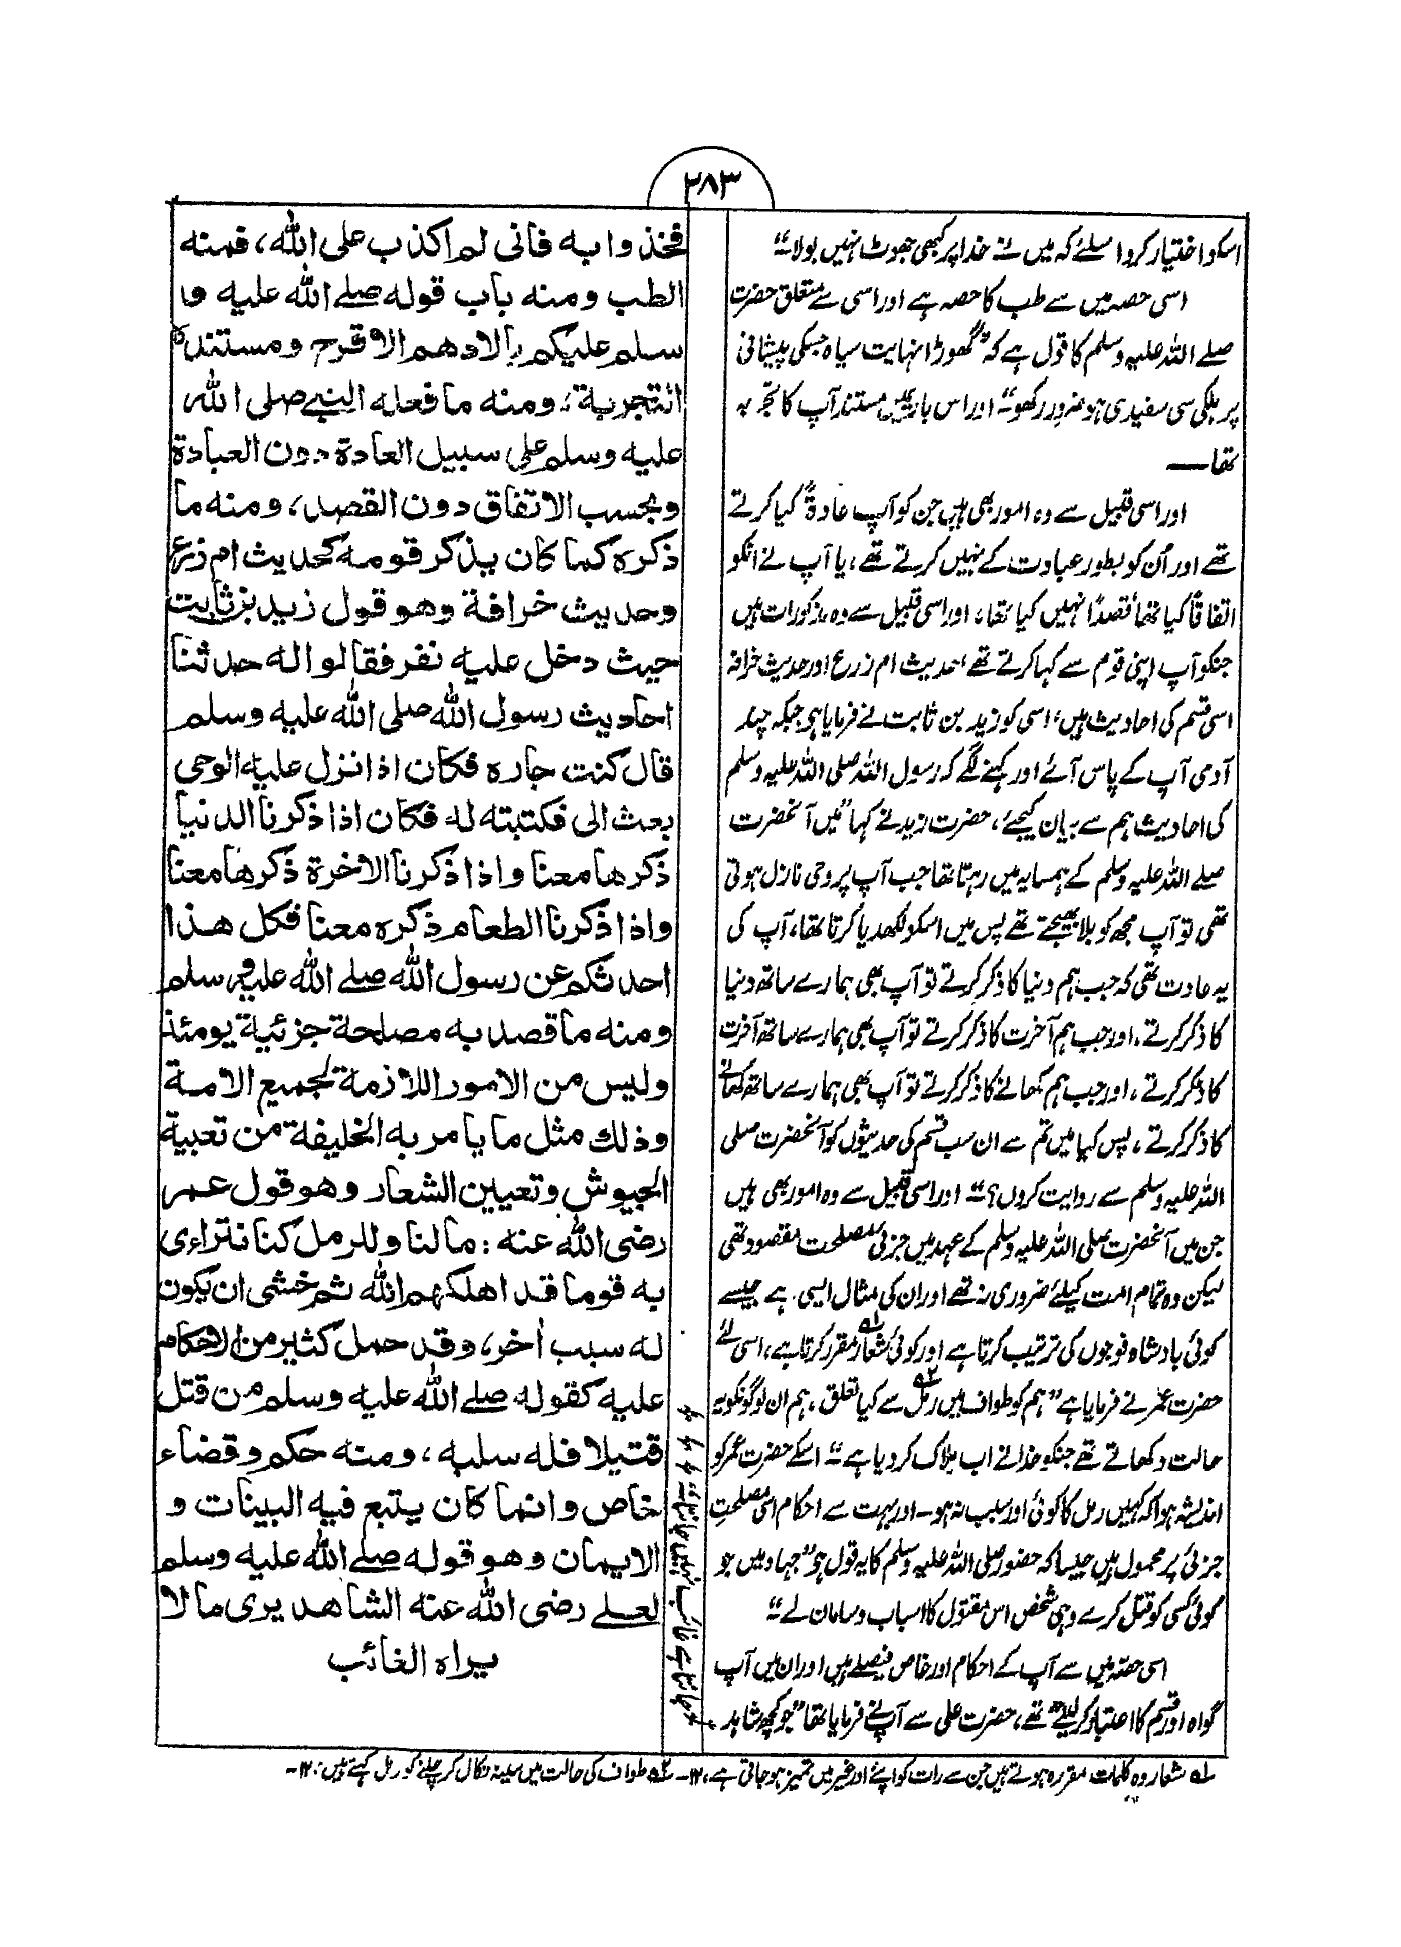 ۲۸۳
اسکو اختیار کرو اسلئے کہ میں نے خدا پر کبھی جھوٹ نہیں بولا“
اسی حصہ میں سے طب کا حصہ ہے اور اسی سے متعلق حضرت
صلے اللہ علیہ وسلم کا قول ہے کہ ”گھوڑا نہایت سیاہ جسکی پیشانی
پر ہلکی سی سفیدی ہو ضرور رکھو“ اور اس بارے میں مستند آپ کا تجربہ
تھا—
اور اسی قبیل سے وہ امور بھی ہیں جن کو آپ عادۃً کیا کرتے
تھے اور اُن کو بطور عبادت کے نہیں کرتے تھے، یا آپ نے انکو
اتفاقاً کیا تھا قصداً نہیں کیا تھا، اور اسی قبیل سے وہ مذکورات ہیں
جنکو آپ اپنی قوم سے کہا کرتے تھے، حدیث ام زرع اور حدیث خرافہ
اسی قسم کی احادیث ہیں، اسی کو زید بن ثابت نے فرمایا ہی جبکہ چند
آدمی آپ کے پاس آئے اور کہنے لگے کہ رسول اللہ صلی اللہ علیہ وسلم
کی احادیث ہم سے بیان کیجئے، حضرت زید نے کہا ”میں آنحضرت
صلے اللہ علیہ وسلم کے ہمسایہ میں رہتا تھا جب آپ پر وحی نازل ہوتی
تھی تو آپ مجھ کو بلا بھیجتے تھے پس میں اسکو لکھدیا کرتا تھا، آپ کی
یہ عادت تھی کہ جب ہم دنیا کا ذکر کرتے تو آپ بھی ہمارے ساتھ دنیا
کا ذکر کرتے، اور جب ہم آخرت کا ذکر کرتے تو آپ بھی ہمارے ساتھ آخرت
کا ذکر کرتے، اور جب ہم کھانے کا ذکر کرتے تو آپ بھی ہمارے ساتھ کھانے
کا ذکر کرتے، پس کیا میں تم سے ان سب قسم کی حدیثوں کو آنحضرت صلی
اللہ علیہ وسلم سے روایت کروں؟“ اور اسی قبیل سے وہ امور بھی ہیں
جن میں آنحضرت صلی اللہ علیہ وسلم کے عہد میں جزئی مصلحت مقصود تھی
لیکن وہ تمام امت کیلئے ضروری نہ تھے اور ان کی مثال ایسی ہے جیسے
کوئی بادشاہ فوجوں کی ترتیب کرتا ہے اور کوئی شعار ؂۱ مقرر کرتا ہے، اسی لئے
حضرت عمر نے فرمایا ہے ”ہم کو طواف میں رمل ؂۲ سے کیا تعلق، ہم ان لوگونکو یہ
حالت دکھاتے تھے جنکو خدا نے اب ہلاک کر دیا ہے“ اسکے حضرت عمر کو
اندیشہ ہوا کہ کہیں رمل کا کوئی اور سبب نہ ہو۔ اور بہت سے احکام اسی مصلحتِ
جزئی پر محمول ہیں جیسا کہ حضور صلی اللہ علیہ وسلم کا یہ قول ہی ”جہاد میں جو
کوئی کسی کو قتل کرے وہی شخص اس مقتول کا اسباب و سامان لے“
اسی حصّہ میں سے آپ کے احکام اور خاص فیصلے ہیں اور ان میں آپ
گواہ اور قسم کا اعتبار کر لیتے تھے، حضرت علی سے آپ نے فرمایا تھا ”جو کچھ شاہد
جانتا ہے غائب نہیں جانتا ہے“
فخذوا به فانى لم اكذب على الله، فمنه
الطب ومنه باب قوله صلے الله عليه و
سلم عليكم بالادهم الاقرح ومستنده
التجربة، ومنه ما فعله النبے صلى الله
عليه وسلم على سبيل العادة دون العبادة
وبحسب الاتفاق دون القصد، ومنه ما
ذكره كما كان يذكر قومه كحديث ام زرع
وحديث خرافة وهو قول زيد بن ثابت
حيث دخل عليه نفر فقالوا له حدثنا
احاديث رسول الله صلى الله عليه وسلم
قال كنت جاره فكان اذا نزل عليه الوحى
بعث الى فكتبته له فكان اذا ذكرنا الدنيا
ذكرها معنا واذا ذكرنا الاخرة ذكرها معنا
واذا ذكرنا الطعام ذكره معنا فكل هذا
احدثكم عن رسول الله صلے الله عليه وسلم
ومنه ما قصد به مصلحة جزئية يومئذ
وليس من الامور اللازمة لجميع الامة
وذلك مثل ما يامر به الخليفة من تعبية
الجيوش وتعيين الشعار وهو قول عمر
رضى الله عنه: ما لنا وللرمل كنا نتراءى
به قوما قد اهلكهم الله ثم خشى ان يكون
له سبب أخر، وقد حمل كثير من الاحكام
عليه كقوله صلے الله عليه وسلم من قتل
قتيلا فله سلبه، ومنه حكم وقضاء
خاص وانما كان يتبع فيه البينات و
الايمان وهو قوله صلے الله عليه وسلم
لعلے رضى الله عنه الشاهد يرى ما لا
يراه الغائب
؂۱ شعار وہ کلمات مقررہ ہوتے ہیں جن سے رات کو اپنے اور غیر میں تمیز ہو جاتی ہے، ۱۲۔ ؂۲ طواف کی حالت میں سینہ نکال کر چلنے کو رمل کہتے ہیں: ۱۲۔